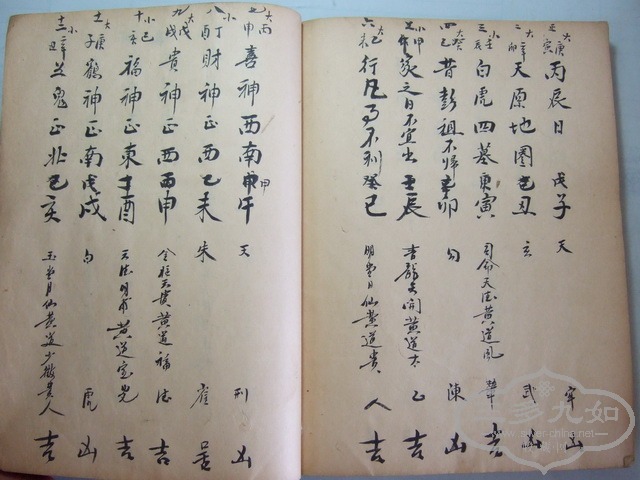 大庚 正寅 丙辰日 戊子 天牢 凶
大 二卯 辛 天原地圈 己丑 玄武 凶
小壬 三 白虎四墓 庚寅 司命天德黄道鳳輦 吉
大癸 四巳 昔彭祖不歸 辛卯 勾陳 凶
小甲 五午 家之日不宜出 壬辰 青龍天開黄道太乙 吉
大 六未 行凡事不利 癸巳 明堂日仙黄道貴人 吉
大丙 七申 喜神西南 甲午 天刑 凶
小 八酉 財神正西 乙未 朱雀
大戊 九戌 貴神正西 丙申 金柜天貴黄道福德 吉
小己 十亥 福神正東 丁酉 天德明甫黄道宝光 吉
大 十一子 鶴神正南 戊戌 白虎 凶
小 十二丑 辛 五鬼正北 己亥 玉堂月仙黄道少微貴人 吉